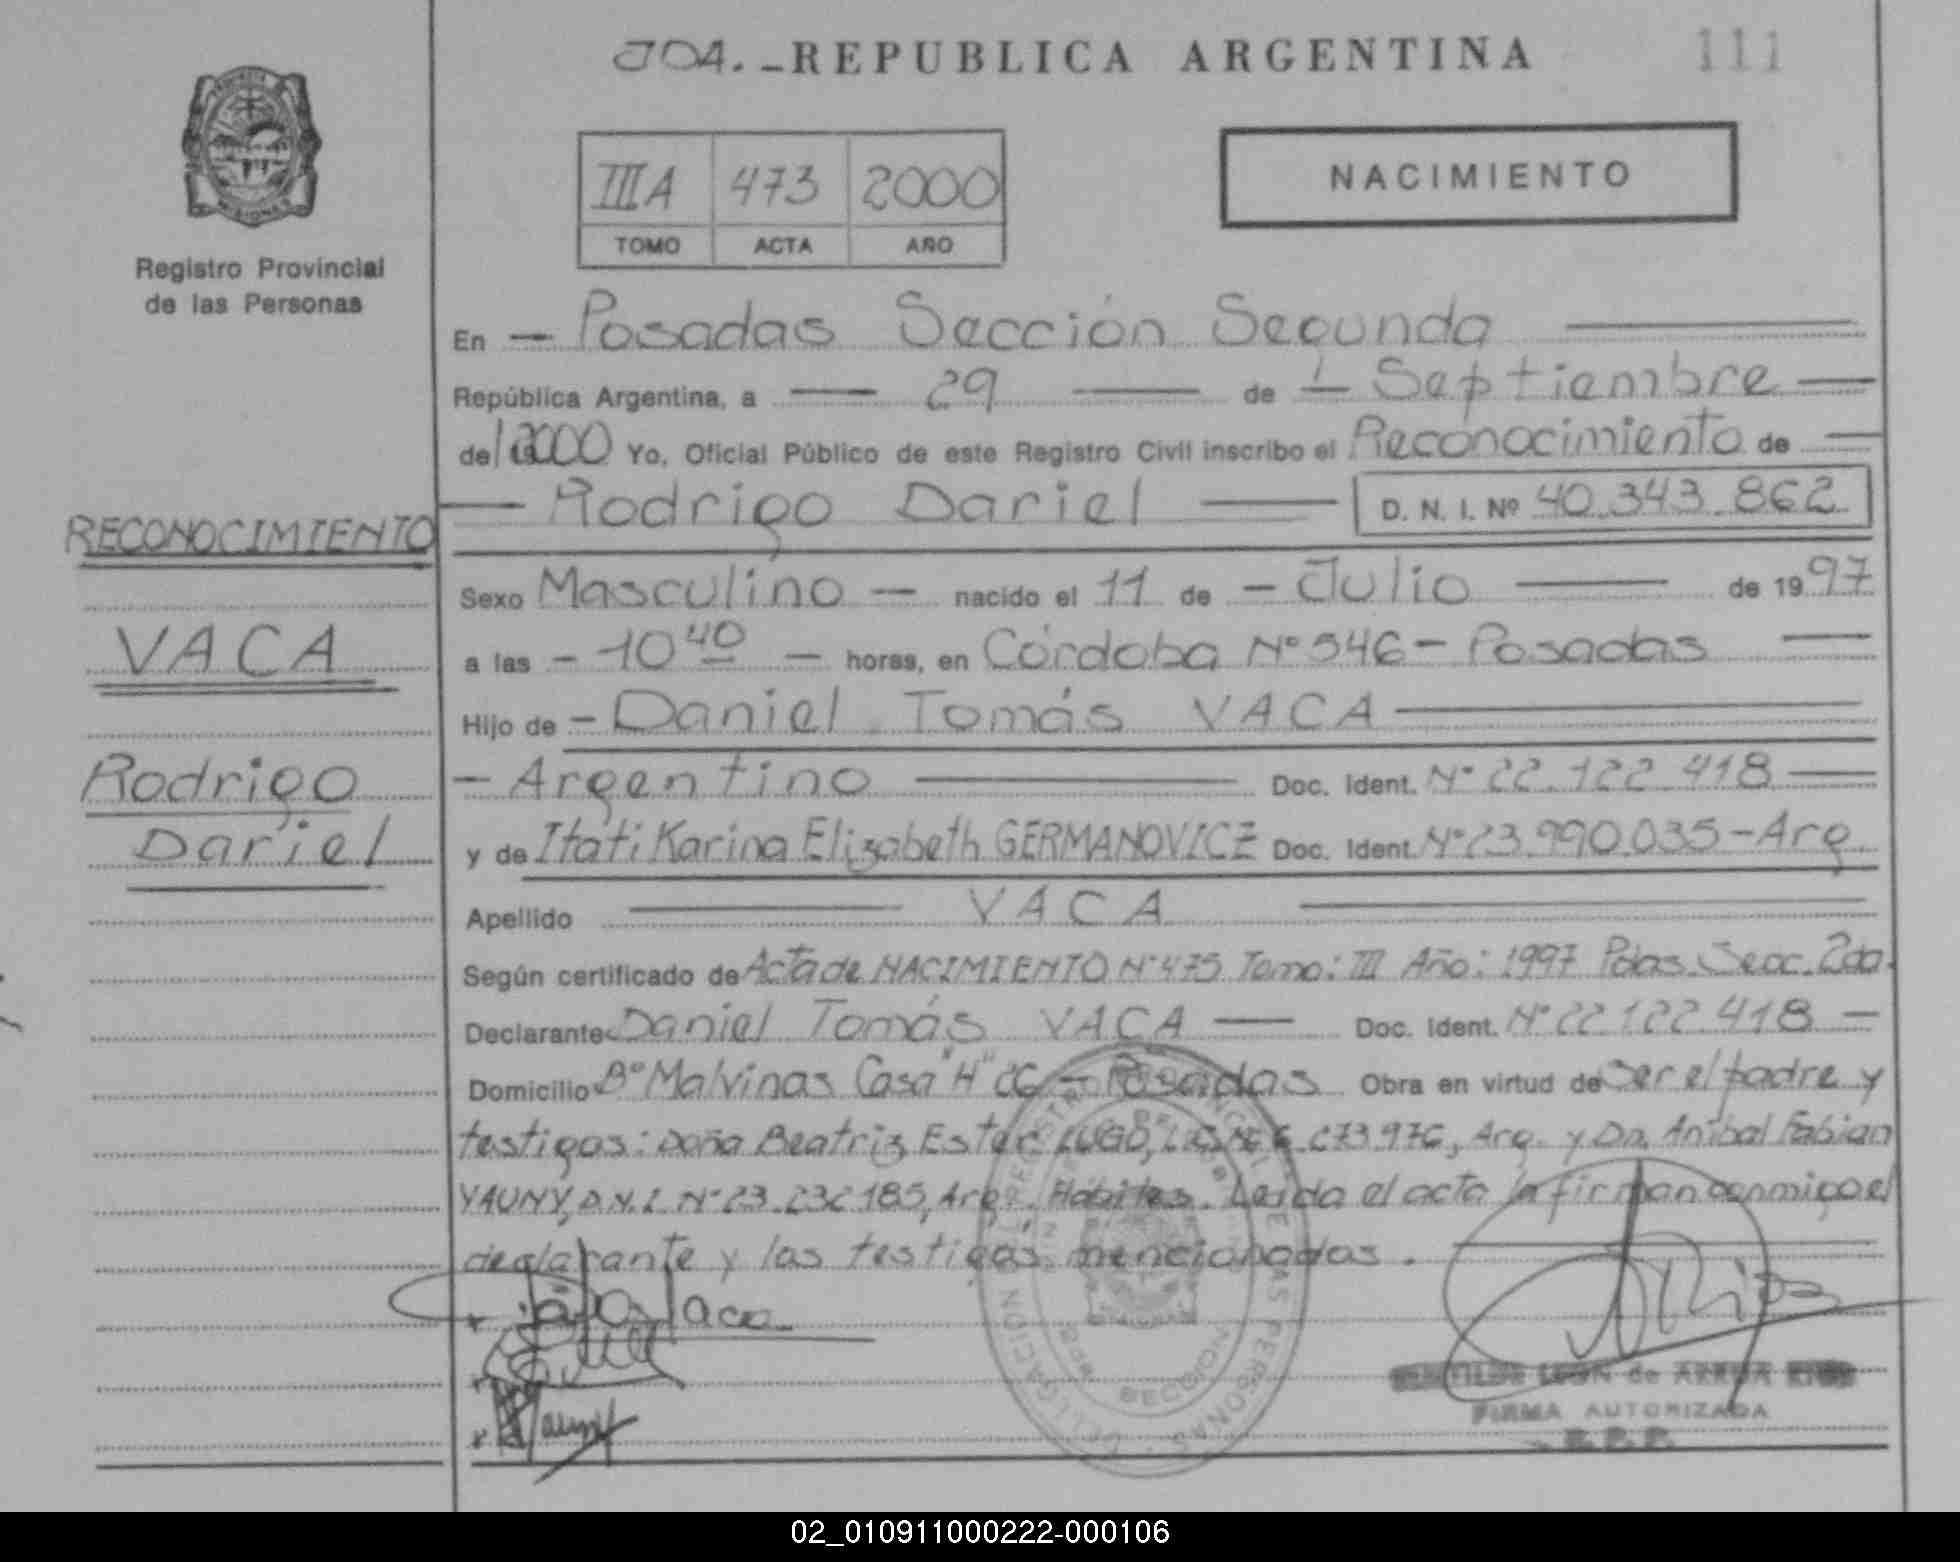 JOA. - REPUBLICA ARGENTINA 111
III A 473 2000
TOMO ACTA AÑO
NACIMIENTO
Registro Provincial
de las Personas
RECONOCIMIENTO
VACA
Rodrigo
Dariel
En - Posadas Sección Segunda
República Argentina, a 29 de Septiembre
de 2000 Yo, Oficial Público de este Registro Civil inscribo el Reconocimiento de
Rodrigo Dariel D. N. I. Nº 40.343.862
Sexo Masculino - nacido el 11 de - Julio de 1997
a las - 10 40 - horas, en Córdoba Nº 546 - Posadas
Hijo de - Daniel Tomás VACA
- Argentino Doc. Ident. Nº 22.122.418
y de Itati Karina Elizabeth GERMANOVICZ Doc. Ident. Nº 23.990.035 - Arg
Apellido VACA
Según certificado de Acta de NACIMIENTO Nº 475 Tomo: III Año: 1997 Pdas. Secc. 2da.
Declarante Daniel Tomás VACA Doc. Ident. Nº 22.122.418 -
Domicilio Bº Malvinas Casa "H" 26 - Posadas Obra en virtud de Ser el padre y
testigos: Doña Beatriz Ester LUGO, 6.273.976, Arg. y Dn. Anibal Fabian
YAUNY, D.N.I. Nº 23.232.185, Arg. Hábiles. Leida el acta la firman conmigo el
declarante y los testigos mencionados.
DELEGACION REGISTRO PROVINCIAL DE LAS PERSONAS
SECCION
LEON de
FIRMA AUTORIZADA
R.P.P.
02_010911000222-000106